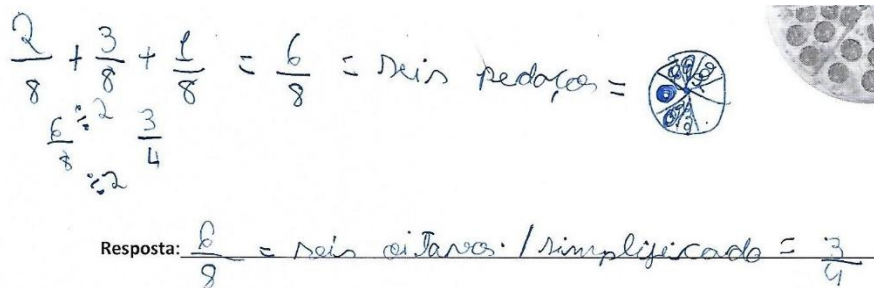 2/8 + 3/8 + 1/8 = 6/8 = seis pedaços =
6/8 ÷2 3/4
÷2
Resposta: 6/8 = seis oitavos. / simplificado = 3/4